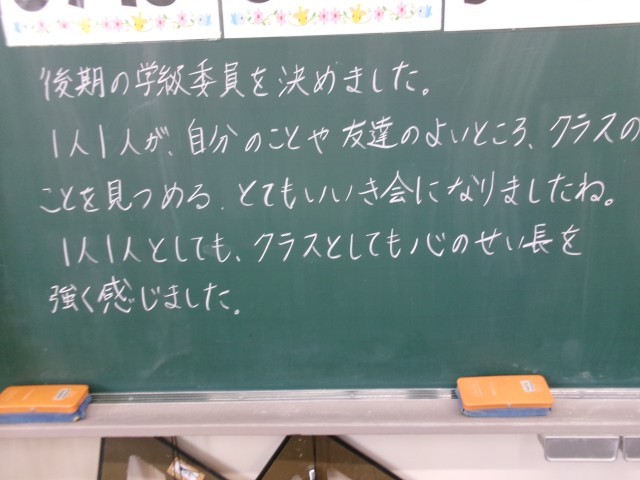 後期の学級委員を決めました。
1人1人が、自分のことや友達のよいところ、クラスの
ことを見つめる、とてもいいき会になりましたね。
1人1人としても、クラスとしても心のせい長を
強く感じました。